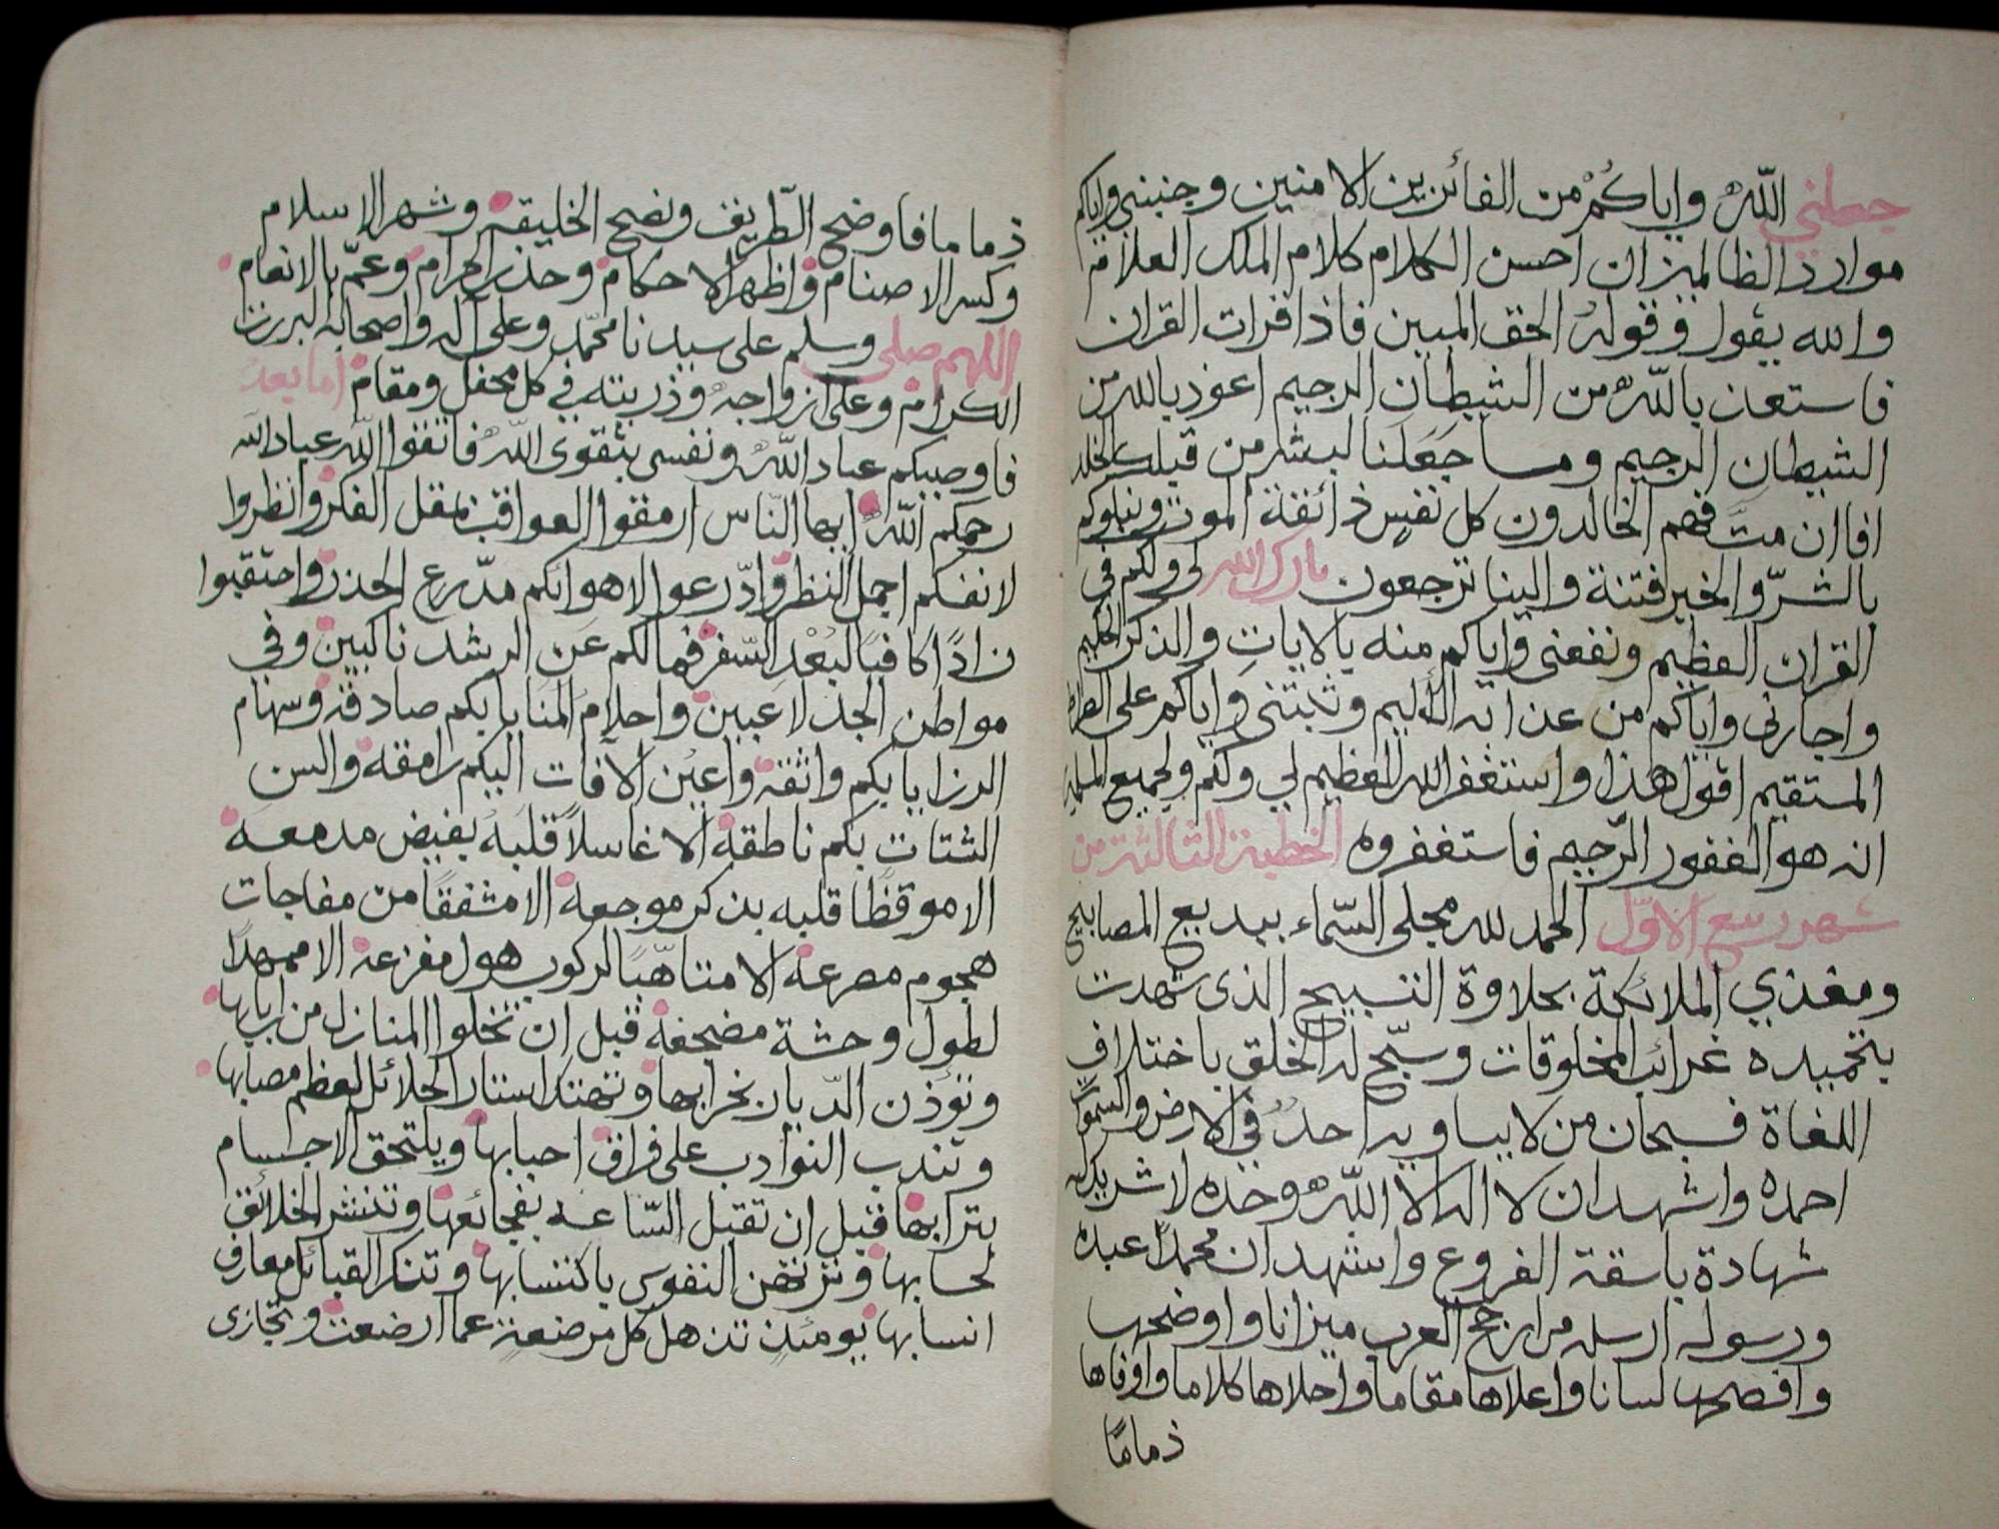 جعلني الله واياكم من الفائزين الامنين وجنبني واياكم
موارد الظالمين ان احسن الكلام كلام الملك العلام
والله يقول وقوله الحق المبين فاذا قرات القران
فاستعذ بالله من الشيطان الرجيم اعوذ بالله من
الشيطان الرجيم وما جَعَلنا لبشر من قبلك الخلد
افاان متَّ فهم الخالدون كل نفسٍ ذائقة الموت ونبلوكم
بالشرّ والخير فتنة والينا ترجعون بارك الله لي ولكم في
القران العظيم ونفعني واياكم منه بالاياتِ والذكر الحكيم
واجارني واياكم من عذابه الاليم وثبتني واياكم على الصراط
المستقيم اقول هذا واستغفر الله العظيم لي ولكم ولجميع المسلمين
انه هو الغفور الرّحيم فاستغفروه الخطبة الثالثة من
شهر ربيع الاوّل الحمد لله مجلي السّماء ببديع المصابيح
ومغذي الملائكة بحلاوة التسبيح الذى شهدت
بتحميده غرائب المخلوقات وسبّح له الخلق باختلاف
اللغاة فسبحان من لا يساويه احد في الارض والسموات
احمده واشهد ان لا اله الا اللّه وحده لا شريك له
شهادة باسقة الفروع واشهد ان محمدًا عبده
ورسوله ارسله من ارجح العرب ميزانا واوضحها
وافصحها لسانا واعلاها مقاما واحلاها كلاما واوفاها
ذمامًا
ذماما فاوضح الطّريقة ونصح الخليقة وشهر الاسلام
وكسر الاصنام واظهر الاحكام وحذر الحرام وعمّ بالانعام
اللهم صلى وسلم على سيدنا محمّد وعلى آله واصحابه البررة
الكرام وعلى ازواجه وذريته في كل محفل ومقام اما بعد
فاوصيكم عباد اللّه ونفسى بتقوى اللّه فاتقوا اللّه عباد الله
رحمكم اللّه ايها النّاس ارمقوا العواقب بمقل الفكر وانظروا
لانفسكم اجمل النظر وادّرعوا لاهوائكم مدّرع الحذر واحتقبوا
زادًا كافيًا لبُعْد السّفر فما لكم عَن الرشد ناكبين وفي
مواطن الجد لاعبين واحلام المنايا بكم صادقة وسهام
الرزايا بكم واثقة واعين الآفات اليكم رامقة والسن
الشتات بكم ناطقة الا غاسلاً قلبه بفيض مدمعه
الا موقظًا قلبه بذكر موجعه الا مشفقًا من مفاجات
هجوم مصرعه الا متاهّبًا لركوب هول مفزعه الا ممهدًا
لطول وحشة مضجعه قبل ان تخلوا المنازل من اربابها
وتؤذن الدّيار بخرابها وتهتك استار الحلائل لعظم مصابها
وتندب النوادب على فراق احبابها ويلتحق الاجسام
بترابها قبل ان تقبل السّاعه بفجائعها وتنشر الخلائق
لحسابها وترتهن النفوس باكتسابها وتنكر القبائل معارف
انسابها يومئذٍ تذهل كل مرضعةٍ عما ارضعت وتجازى